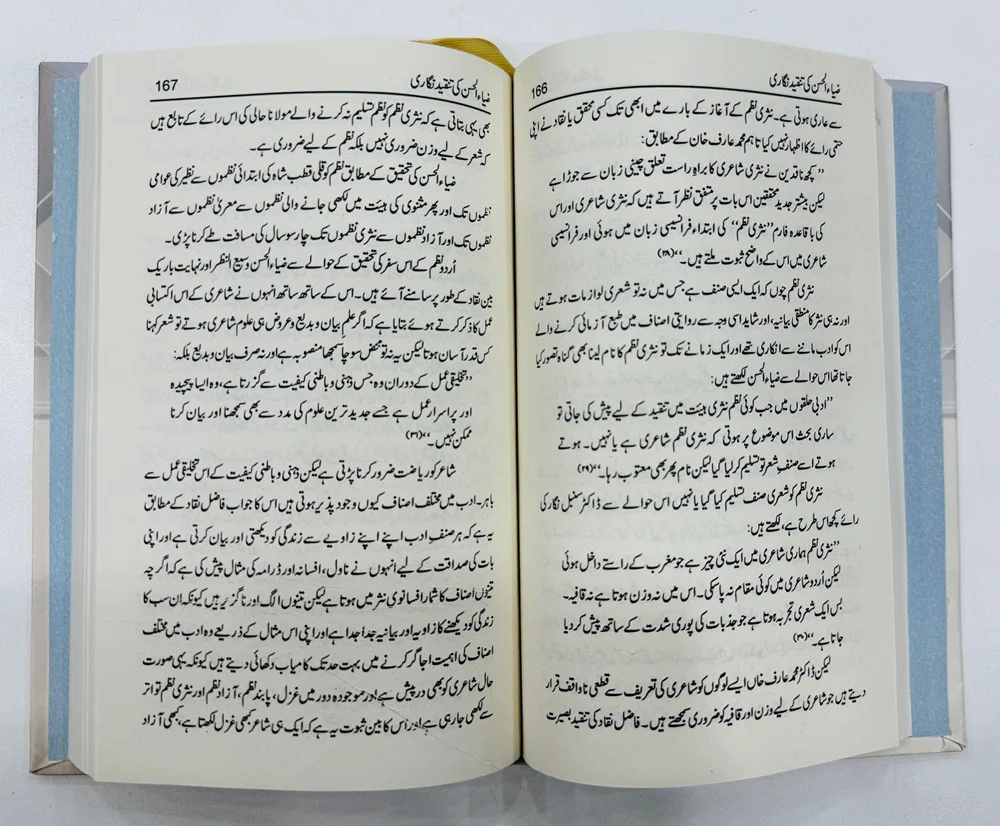 ضیاء الحسن کی تنقید نگاری
166
سے عاری ہوتی ہے۔ نثری نظم کے آغاز کے بارے میں ابھی تک کسی محقق یا نقاد نے اپنی
حتمی رائے کا اظہار نہیں کیا تاہم محمد عارف خان کے مطابق:
”کچھ ناقدین نے نثری شاعری کا براہِ راست تعلق چینی زبان سے جوڑا ہے
لیکن بیشتر جدید محققین اس بات پر متفق نظر آتے ہیں کہ نثری شاعری اور اس
کی باقاعدہ فارم ”نثری نظم“ کی ابتداء فرانسیسی زبان میں ہوئی اور فرانسیسی
شاعری میں اس کے واضح ثبوت ملتے ہیں۔“(۲۸)
نثری نظم چوں کہ ایک ایسی صنف ہے جس میں نہ تو شعری لوازمات ہوتے ہیں
اور نہ ہی نثر کا منطقی بیانیہ، اور شاید اسی وجہ سے روایتی اصناف میں طبع آزمائی کرنے والے
اس کو ادب ماننے سے انکاری تھے اور ایک زمانے تک تو نثری نظم کا نام لینا بھی گناہ تصور کیا
جاتا تھا اس حوالے سے ضیاء الحسن لکھتے ہیں:
”ادبی حلقوں میں جب کوئی نظم نثری ہیئت میں تنقید کے لیے پیش کی جاتی تو
ساری بحث اس موضوع پر ہوتی کہ نثری نظم شاعری ہے یا نہیں۔ ہوتے
ہوتے اسے صنفِ شعر تو تسلیم کر لیا گیا لیکن نام پھر بھی معتوب رہا۔“(۲۹)
نثری نظم کو شعری صنف تسلیم کیا گیا یا نہیں اس حوالے سے ڈاکٹر سنبل نگار کی
رائے کچھ اس طرح ہے، لکھتے ہیں:
”نثری نظم ہماری شاعری میں ایک نئی چیز ہے جو مغرب کے راستے داخل ہوئی
لیکن اُردو شاعری میں کوئی مقام نہ پا سکی۔ اس میں نہ وزن ہوتا ہے نہ قافیہ۔
بس ایک شعری تجربہ ہوتا ہے جو جذبات کی پوری شدت کے ساتھ پیش کر دیا
جاتا ہے۔“(۳۰)
لیکن ڈاکٹر محمد عارف خاں ایسے لوگوں کو شاعری کی تعریف سے قطعی ناواقف قرار
دیتے ہیں جو شاعری کے لیے وزن اور قافیہ کو ضروری سمجھتے ہیں۔ فاضل نقاد کی تنقید بصیرت
ضیاء الحسن کی تنقید نگاری
167
بھی یہی بتاتی ہے کہ نثری نظم کو نظم تسلیم نہ کرنے والے مولانا حالی کی اس رائے کے تابع ہیں
کہ شعر کے لیے وزن ضروری نہیں بلکہ نظم کے لیے ضروری ہے۔
ضیاء الحسن کی تحقیق کے مطابق نظم کو قلی قطب شاہ کی ابتدائی نظموں سے نظیر کی عوامی
نظموں تک اور پھر مثنوی کی ہیئت میں لکھی جانے والی نظموں سے معریٰ نظموں سے آزاد
نظموں تک اور آزاد نظموں سے نثری نظموں تک چار سو سال کی مسافت طے کرنا پڑی۔
اُردو نظم کے اس سفر کی تحقیق کے حوالے سے ضیاء الحسن وسیع النظر اور نہایت باریک
بین نقاد کے طور پر سامنے آئے ہیں۔ اس کے ساتھ ساتھ انہوں نے شاعری کے اس اکتسابی
عمل کا ذکر کرتے ہوئے بتایا ہے کہ اگر علم بیان و بدیع و عروض ہی علوم شاعری ہوتے تو شعر کہنا
کس قدر آسان ہوتا لیکن یہ نہ تو محض سوچا سمجھا منصوبہ ہے اور نہ صرف بیان و بدیع بلکہ:
”تخلیقی عمل کے دوران وہ جس ذہنی و باطنی کیفیت سے گزرتا ہے، وہ ایسا پیچیدہ
اور پراسرار عمل ہے جسے جدید ترین علوم کی مدد سے بھی سمجھنا اور بیان کرنا
ممکن نہیں۔“(۳۱)
شاعر کو ریاضت ضرور کرنا پڑتی ہے لیکن ذہنی و باطنی کیفیت کے اس تخلیقی عمل سے
باہر۔ ادب میں مختلف اصناف کیوں وجود پذیر ہوتی ہیں اس کا جواب فاضل نقاد کے مطابق
یہ ہے کہ ہر صنفِ ادب اپنے اپنے زاویے سے زندگی کو دیکھتی اور بیان کرتی ہے اور اپنی
بات کی صداقت کے لیے انہوں نے ناول، افسانہ اور ڈرامہ کی مثال پیش کی ہے کہ اگرچہ
تینوں اصناف کا شمار افسانوی نثر میں ہوتا ہے لیکن تینوں الگ اور ناگزیر ہیں کیونکہ ان سب کا
زندگی کو دیکھنے کا زاویہ اور بیانیہ جداً جدا ہے اور اپنی اس مثال کے ذریعے وہ ادب میں مختلف
اصناف کی اہمیت اجاگر کرنے میں بہت حد تک کامیاب دکھائی دیتے ہیں کیونکہ یہی صورت
حال شاعری کو بھی درپیش ہے اور موجودہ دور میں غزل، پابند نظم، آزاد نظم اور نثری نظم تواتر
سے لکھی جا رہی ہے اور اس کا بین ثبوت یہ ہے کہ ایک ہی شاعر کبھی غزل لکھتا ہے، کبھی آزاد